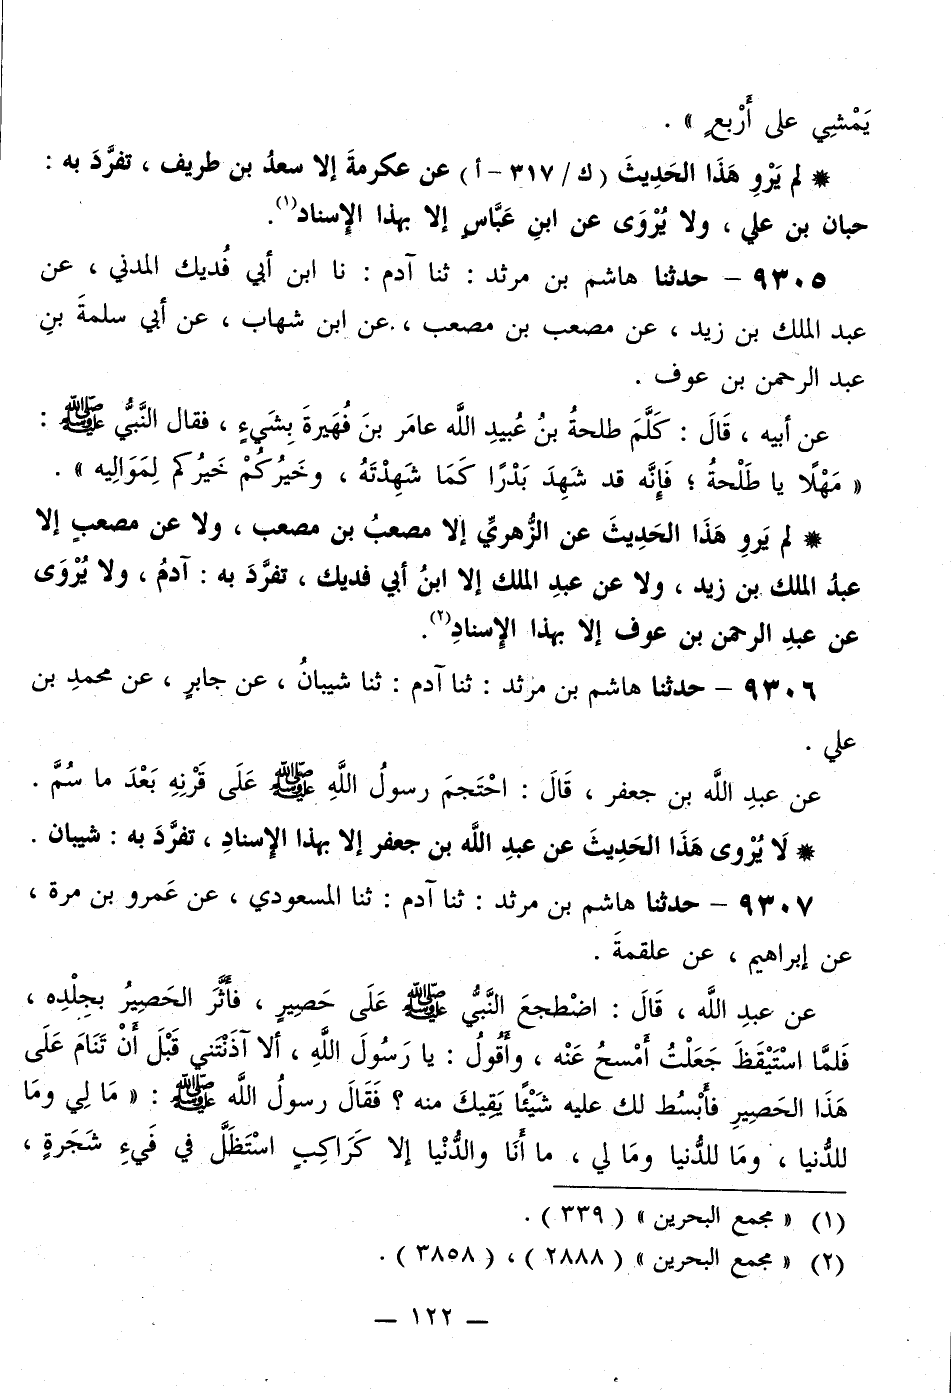 يَمْشِي على أَرْبعٍ » .
* لم يَرْوِ هَذَا الحَدِيثَ (ك/ ٣١٧ - أ) عن عكرمةَ إلا سعدُ بن طريف ، تفرَّدَ به :
حبان بن علي ، ولا يُرْوَى عن ابنِ عَبَّاسٍ إلا بهذا الإِسناد(١).
٩٣٠٥ - حدثنا هاشم بن مرثد : ثنا آدم : نا ابن أبي فُديك المدني ، عن
عبد الملك بن زيد ، عن مصعب بن مصعب ، عن ابن شهاب ، عن أبي سلمةَ بنِ
عبد الرحمن بن عوف .
عن أبيه ، قَالَ : كَلَّمَ طلحةُ بنُ عُبيدِ اللَّه عامَر بنَ فُهَيرةَ بِشَيءٍ ، فقال النَّبيُّ ﷺ :
« مَهْلًا يا طَلْحةُ ؛ فَإِنَّه قد شَهِدَ بَدْرًا كَمَا شَهِدْتَهُ ، وخَيرُكُمْ خَيرُكم لِمَوَالِيه » .
* لم يَروِ هَذَا الحَدِيثَ عن الزُّهريِّ إلا مصعبُ بن مصعب ، ولا عن مصعبٍ إلا
عبدُ الملك بن زيد ، ولا عن عبدِ الملك إلا ابنُ أبي فديك ، تفرَّدَ به : آدمُ ، ولا يُرْوَى
عن عبدِ الرحمن بن عوف إلا بهذا الإِسنادِ(٢).
٩٣٠٦ - حدثنا هاشم بن مرثد : ثنا آدم : ثنا شيبانُ ، عن جابرٍ ، عن محمدِ بن
علي .
عن عبدِ اللَّه بن جعفر ، قَالَ : احْتَجمَ رسولُ اللَّهِ ﷺ عَلَى قَرْنِهِ بَعْدَ ما سُمَّ .
* لَا يُرْوى هَذَا الحَدِيثَ عن عبدِ اللَّه بن جعفر إلا بهذا الإِسنادِ ، تفرَّدَ به : شيبان .
٩٣٠٧ - حدثنا هاشم بن مرثد : ثنا آدم : ثنا المسعودي ، عن عَمرو بن مرة ،
عن إبراهيم ، عن علقمةَ .
عن عبدِ اللَّه ، قَالَ : اضْطجعَ النَّبيُّ ﷺ عَلَى حَصِيرٍ ، فأثَّرَ الحَصِيرُ بجِلْدِه ،
فَلمَّا اسْتَيْقَظَ جَعَلْتُ أَمْسحُ عَنْه ، وأَقُولُ : يا رَسُولَ اللَّهِ ، ألا آذَنْتَني قَبْلَ أَنْ تَنَامَ عَلَى
هَذَا الحَصِيرِ فأَبْسُط لك عليه شَيْئًا يَقِيكَ منه ؟ فَقَالَ رسولُ اللَّه ﷺ : « مَا لِي ومَا
للدُّنيا ، ومَا للدُّنيا ومَا لي ، ما أَنَا والدُّنْيا إلا كَرَاكِبٍ اسْتَظَلَّ في فَيءِ شَجَرةٍ ،
(١) « مجمع البحرين » ( ٣٣٩ ) .
(٢) « مجمع البحرين » ( ٢٨٨٨ ) ، ( ٣٨٥٨ ) .
— ١٢٢ —